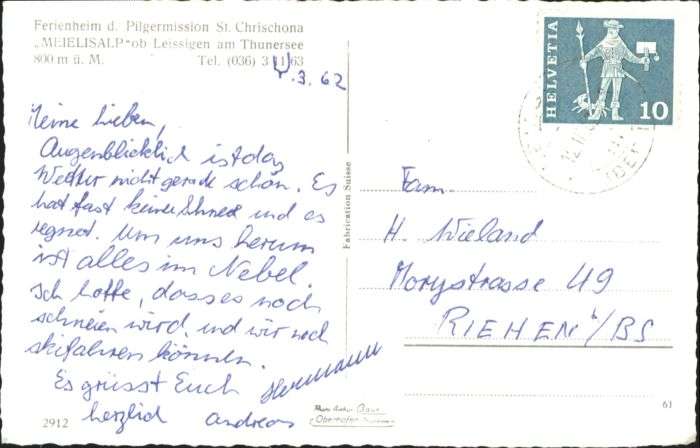 Ferienheim d. Pilgermission St. Chrischona
„MEIELISALP" ob Leissigen am Thunersee
800 m ü. M. Tel. (036) 3 11 63
4.3.62
Meine Lieben,
Augenblicklich ist das
Wetter nicht gerade schön. Es
hat fast keinen Schnee und es
regnet. Um uns herum
ist alles im Nebel.
Ich hoffe, dass es noch
schneien wird, und wir noch
skifahren können.
Es grüsst Euch
herzlich Andreas
Hermann
2912
Fabrication Suisse
HELVETIA
10
Fam.
H. Wieland
Morystrasse 49
RIEHEN b/BS
61